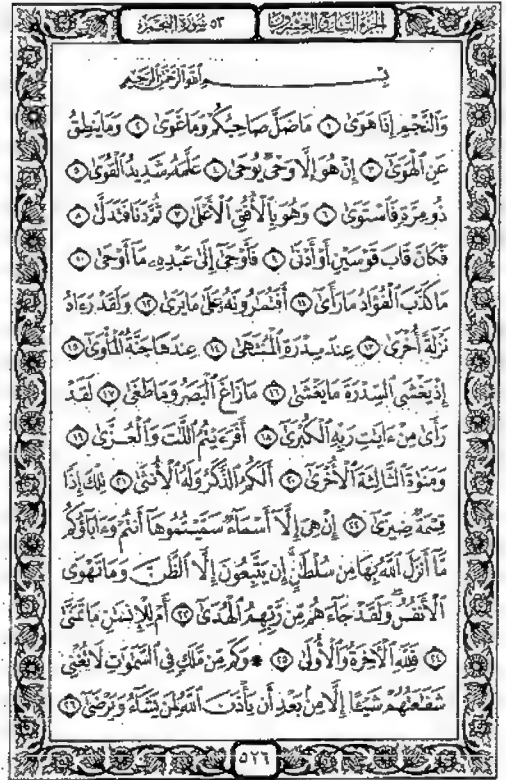 الجزء السابع والعشرون ٥٣ سورة النجم
بِسْمِ ٱللَّهِ ٱلرَّحْمَٰنِ ٱلرَّحِيمِ
وَٱلنَّجْمِ إِذَا هَوَىٰ ١ مَا ضَلَّ صَاحِبُكُمْ وَمَا غَوَىٰ ٢ وَمَا يَنطِقُ
عَنِ ٱلْهَوَىٰٓ ٣ إِنْ هُوَ إِلَّا وَحْىٌ يُوحَىٰ ٤ عَلَّمَهُۥ شَدِيدُ ٱلْقُوَىٰ ٥
ذُو مِرَّةٍ فَٱسْتَوَىٰ ٦ وَهُوَ بِٱلْأُفُقِ ٱلْأَعْلَىٰ ٧ ثُمَّ دَنَا فَتَدَلَّىٰ ٨
فَكَانَ قَابَ قَوْسَيْنِ أَوْ أَدْنَىٰ ٩ فَأَوْحَىٰٓ إِلَىٰ عَبْدِهِۦ مَآ أَوْحَىٰ ١٠
مَا كَذَبَ ٱلْفُؤَادُ مَا رَأَىٰٓ ١١ أَفَتُمَٰرُونَهُۥ عَلَىٰ مَا يَرَىٰ ١٢ وَلَقَدْ رَءَاهُ
نَزْلَةً أُخْرَىٰ ١٣ عِندَ سِدْرَةِ ٱلْمُنتَهَىٰ ١٤ عِندَهَا جَنَّةُ ٱلْمَأْوَىٰٓ ١٥
إِذْ يَغْشَى ٱلسِّدْرَةَ مَا يَغْشَىٰ ١٦ مَا زَاغَ ٱلْبَصَرُ وَمَا طَغَىٰ ١٧ لَقَدْ
رَأَىٰ مِنْ ءَايَٰتِ رَبِّهِ ٱلْكُبْرَىٰٓ ١٨ أَفَرَءَيْتُمُ ٱللَّٰتَ وَٱلْعُزَّىٰ ١٩
وَمَنَوٰةَ ٱلثَّالِثَةَ ٱلْأُخْرَىٰٓ ٢٠ أَلَكُمُ ٱلذَّكَرُ وَلَهُ ٱلْأُنثَىٰ ٢١ تِلْكَ إِذًا
قِسْمَةٌ ضِيزَىٰٓ ٢٢ إِنْ هِىَ إِلَّآ أَسْمَآءٌ سَمَّيْتُمُوهَآ أَنتُمْ وَءَابَآؤُكُم
مَّآ أَنزَلَ ٱللَّهُ بِهَا مِن سُلْطَٰنٍ إِن يَتَّبِعُونَ إِلَّا ٱلظَّنَّ وَمَا تَهْوَى
ٱلْأَنفُسُ وَلَقَدْ جَآءَهُم مِّن رَّبِّهِمُ ٱلْهُدَىٰٓ ٢٣ أَمْ لِلْإِنسَٰنِ مَا تَمَنَّىٰ
٢٤ فَلِلَّهِ ٱلْءَاخِرَةُ وَٱلْأُولَىٰ ٢٥ * وَكَم مِّن مَّلَكٍ فِى ٱلسَّمَٰوَٰتِ لَا تُغْنِى
شَفَٰعَتُهُمْ شَيْـًٔا إِلَّا مِنۢ بَعْدِ أَن يَأْذَنَ ٱللَّهُ لِمَن يَشَآءُ وَيَرْضَىٰٓ ٢٦
٥٢٦